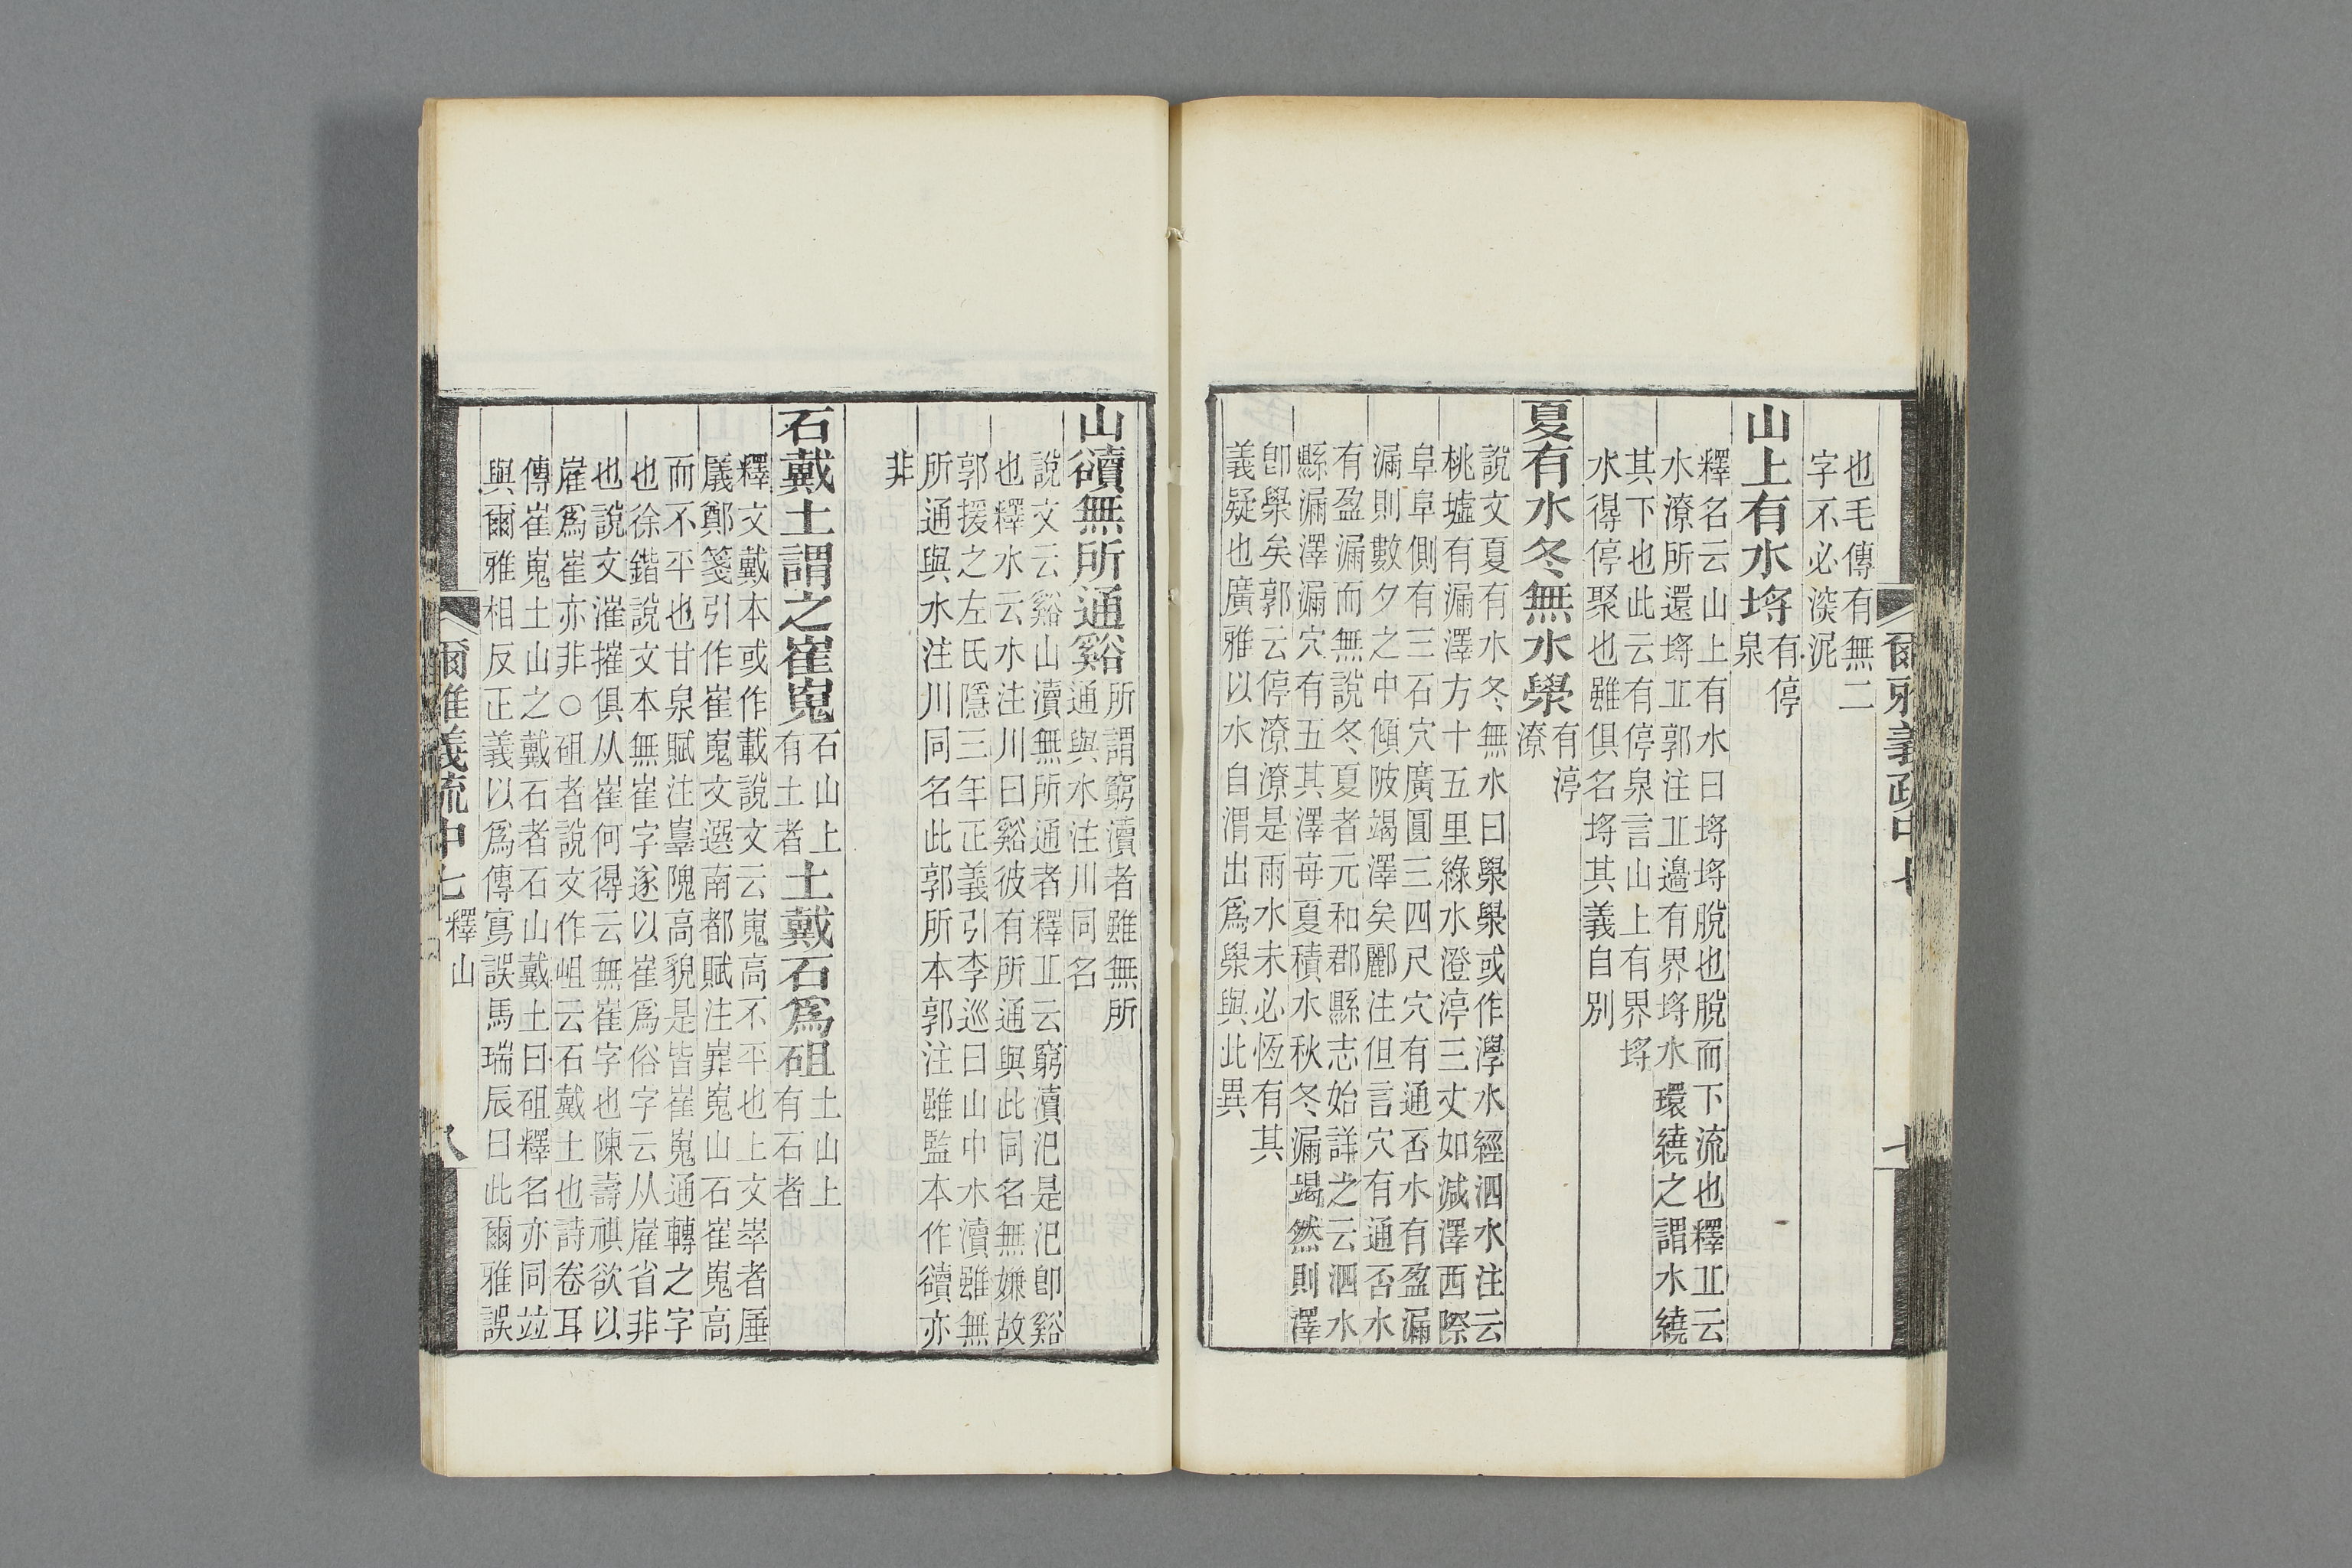 爾雅義疏中七
七
也毛傳有無二
字不必淡泥
山上有水埒有停
泉
釋名云山上有水曰埒埒脫也脫而下流也釋丠云
水潦所還埒丠郭注丠邉有界埒水環繞之謂水繞
其下也此云有停泉言山上有界埒
水得停聚也雖俱名埒其義自別
夏有水冬無水澩有停
潦
說文夏有水冬無水曰澩澩或作㶅水經泗水注云
桃墟有漏澤方十五里綠水澄渟三丈如減澤西際
阜阜側有三石穴廣圓三四尺穴有通否水有盈漏
漏則數夕之中傾陂竭澤矣酈注但言穴有通否水
有盈漏而無說冬夏者元和郡縣志始詳之云泗水
縣漏澤漏穴有五其澤每夏積水秋冬漏竭然則澤
卽澩矣郭云停潦潦是雨水未必恆有其
義疑也廣雅以水自渭出爲澩與此異
山㱩無所通谿所謂窮瀆者雖無所
通與水注川同名
說文云谿山瀆無所通者釋丠云窮瀆汜是汜卽谿
也釋水云水注川曰谿彼有所通與此同名無嫌故
郭援之左氏隱三年正義引李巡曰山中水瀆雖無
所通與水注川同名此郭所本郭注雖監本作㱩亦
非
石戴土謂之崔嵬石山上
有土者土戴石爲砠土山上
有石者
釋文戴本或作載說文云嵬高不平也上文崒者厜
㕒鄭箋引作崔嵬文選南都賦注嶵嵬山石崔嵬高
而不平也甘泉賦注㠑隗高貌是皆崔嵬通轉之字
也徐鍇說文本無崔字遂以崔爲俗字云从嵟省非
也說文漼摧俱从崔何得云無崔字也陳壽祺欲以
嵟爲崔亦非○砠者說文作岨云石戴土也詩卷耳
傳崔嵬土山之戴石者石山戴土曰砠釋名亦同竝
與爾雅相反正義以爲傳寫誤馬瑞辰曰此爾雅誤
爾雅義疏中七 釋山
八